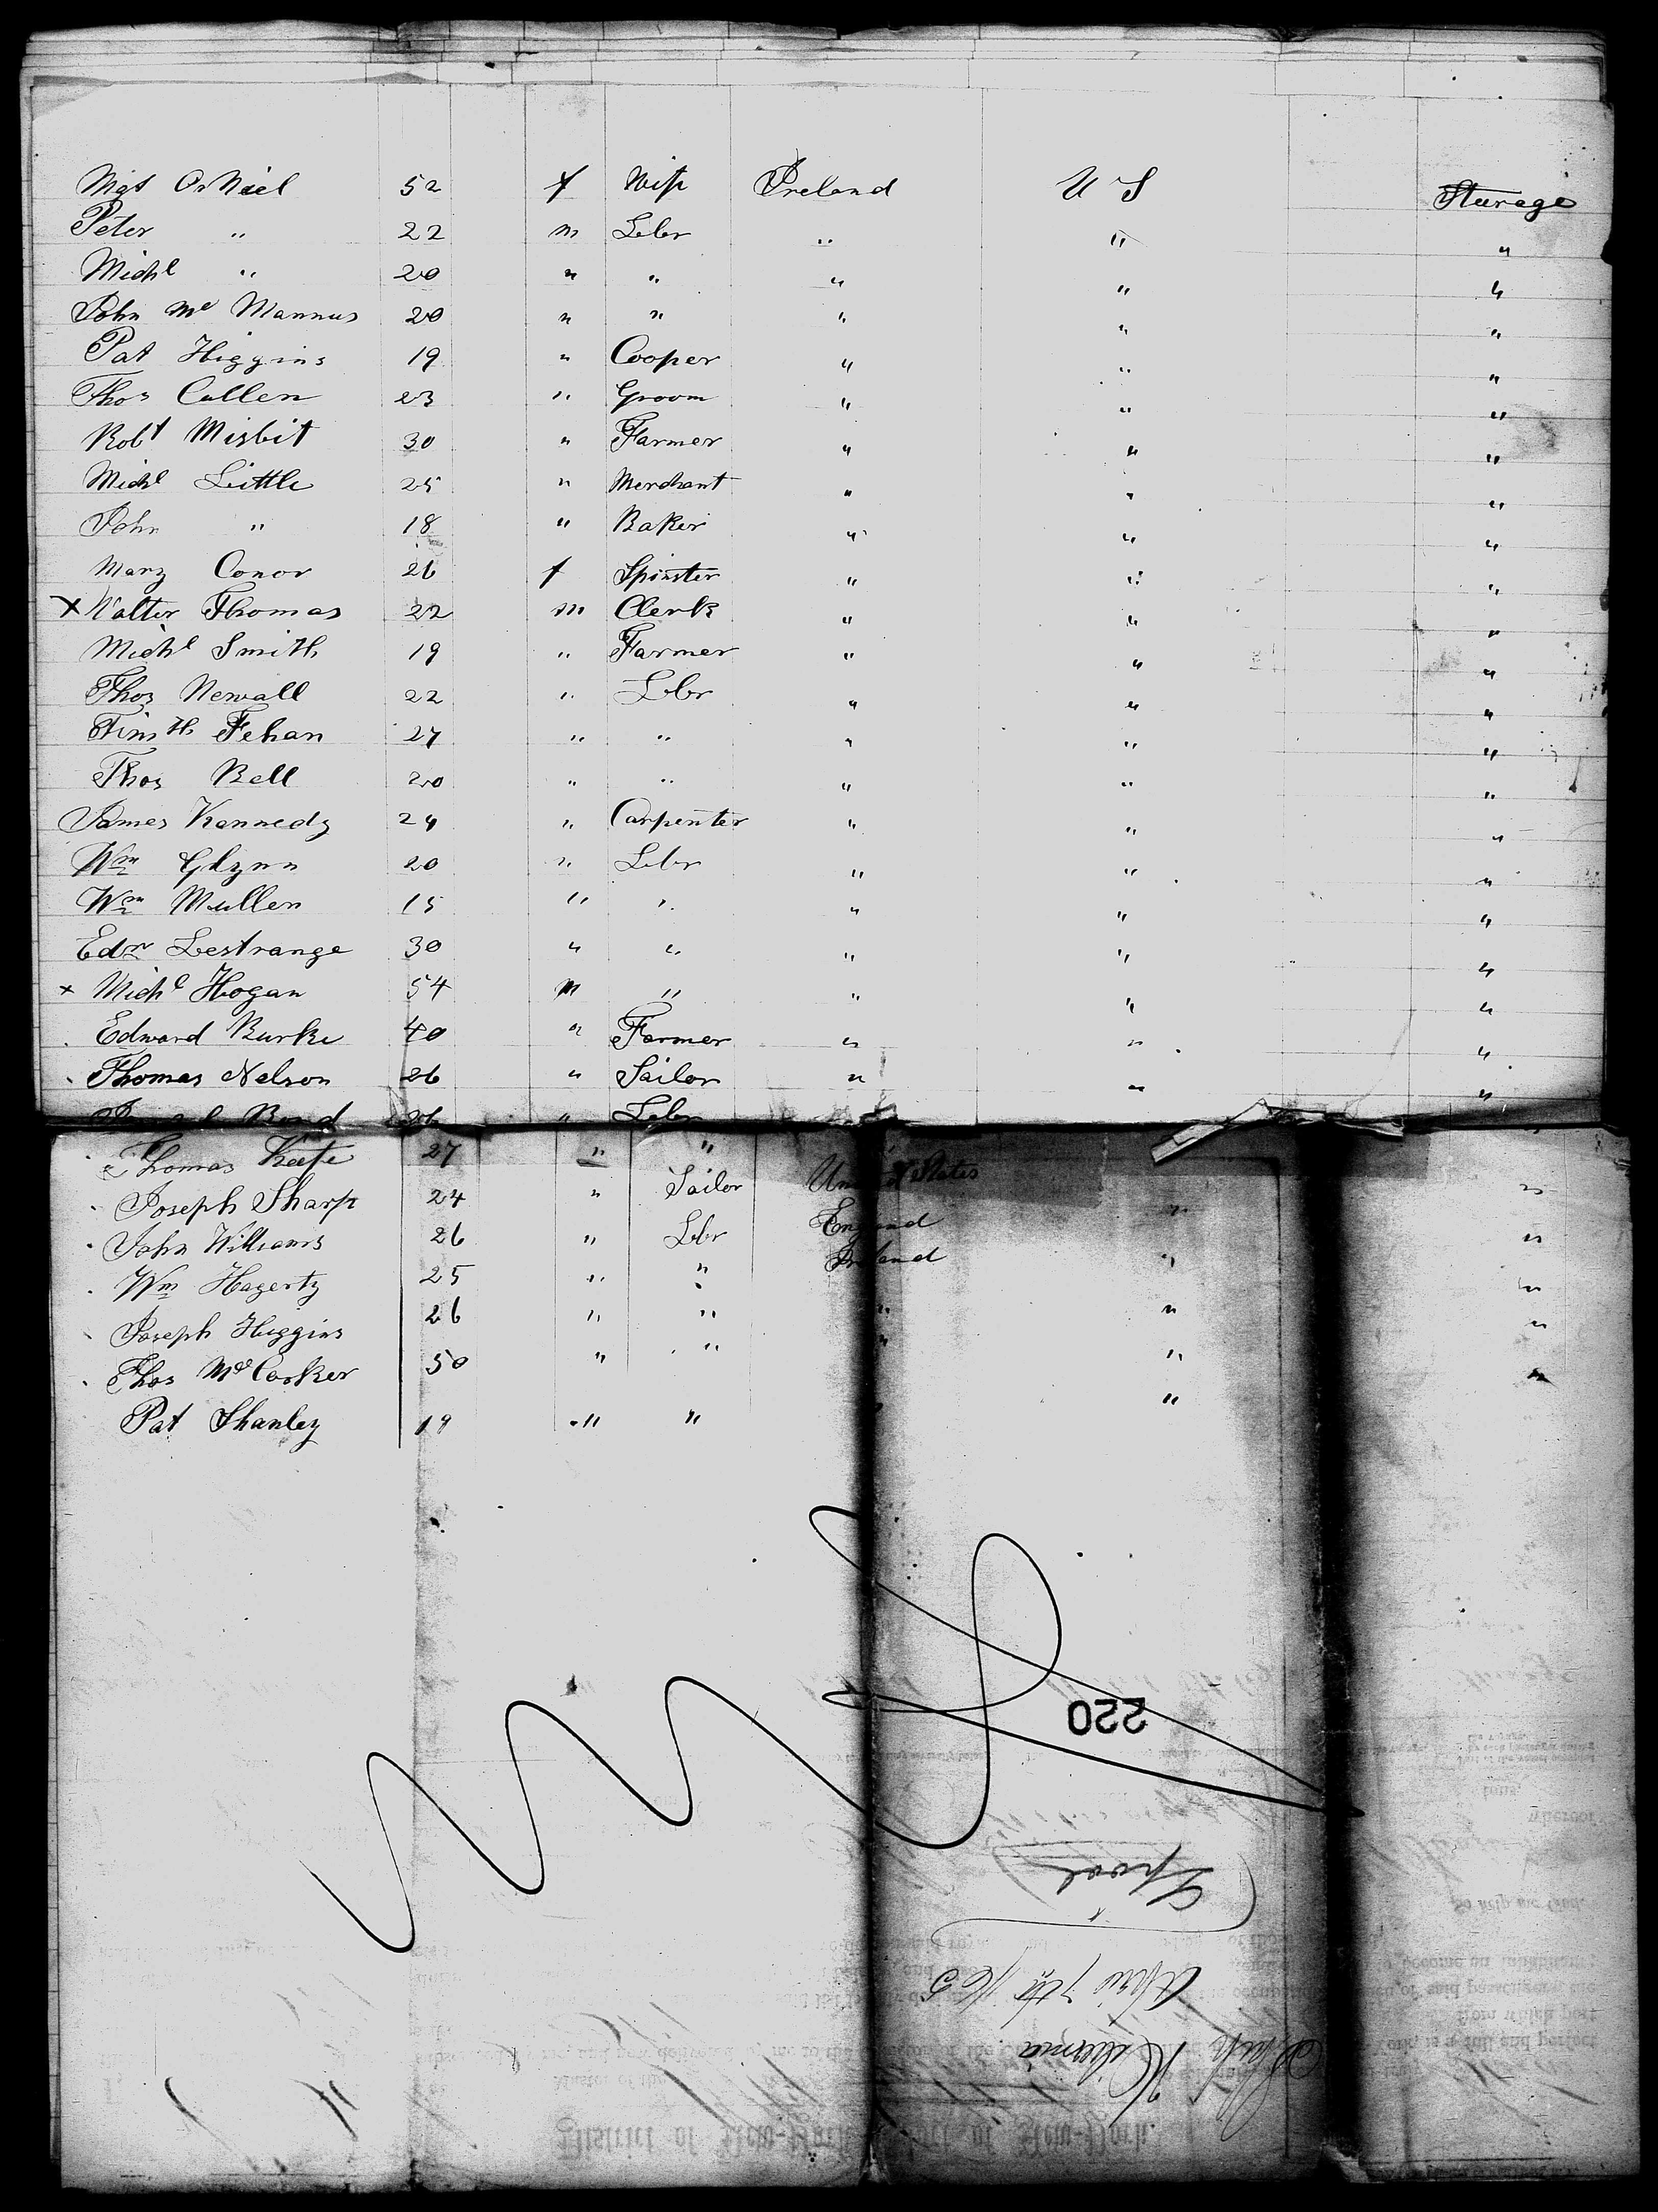 Mgt OrNeel 52 f Wife Ireland U S Steerage
Peter " 22 m Lebr " " "
Michl " 20 " " " " "
John Mc Mannus 20 " " " " "
Pat Higgins 19 " Cooper " " "
Thos Cullen 23 " Groom " " "
Robt Misbit 30 " Farmer " " "
Michl Little 25 " Merchant " " "
John " 18 " Baker " " "
Mary Conor 26 f Spinster " " "
x Walter Thomas 22 m Clerk " " "
Michl Smith 19 " Farmer " " "
Thos Newall 22 " Lebr " " "
Timth Fehan 27 " " " " "
Thos Bell 20 " " " " "
James Kennedy 24 " Carpenter " " "
Wm Glynn 20 " Lebr " " "
Wm Mullen 15 " " " " "
Edn Lestrange 30 " " " " "
x Michl Hogan 54 m " " " "
Edward Burke 40 " Farmer " " "
Thomas Nelson 26 " Sailor " " "
Bond 26 " Lebr
Thomas Keefe 27 " " "
Joseph Sharp 24 " Sailor United States " "
John Williams 26 " Lebr England " "
Wm Hagerty 25 " " Ireland " "
Joseph Huggins 26 " " " " "
Thos McCorker 50 " " " " "
Pat Shanley 19 " " " "
220
Lpool
7th /65
Ship Hibernia
District of New-York Port of New-York.